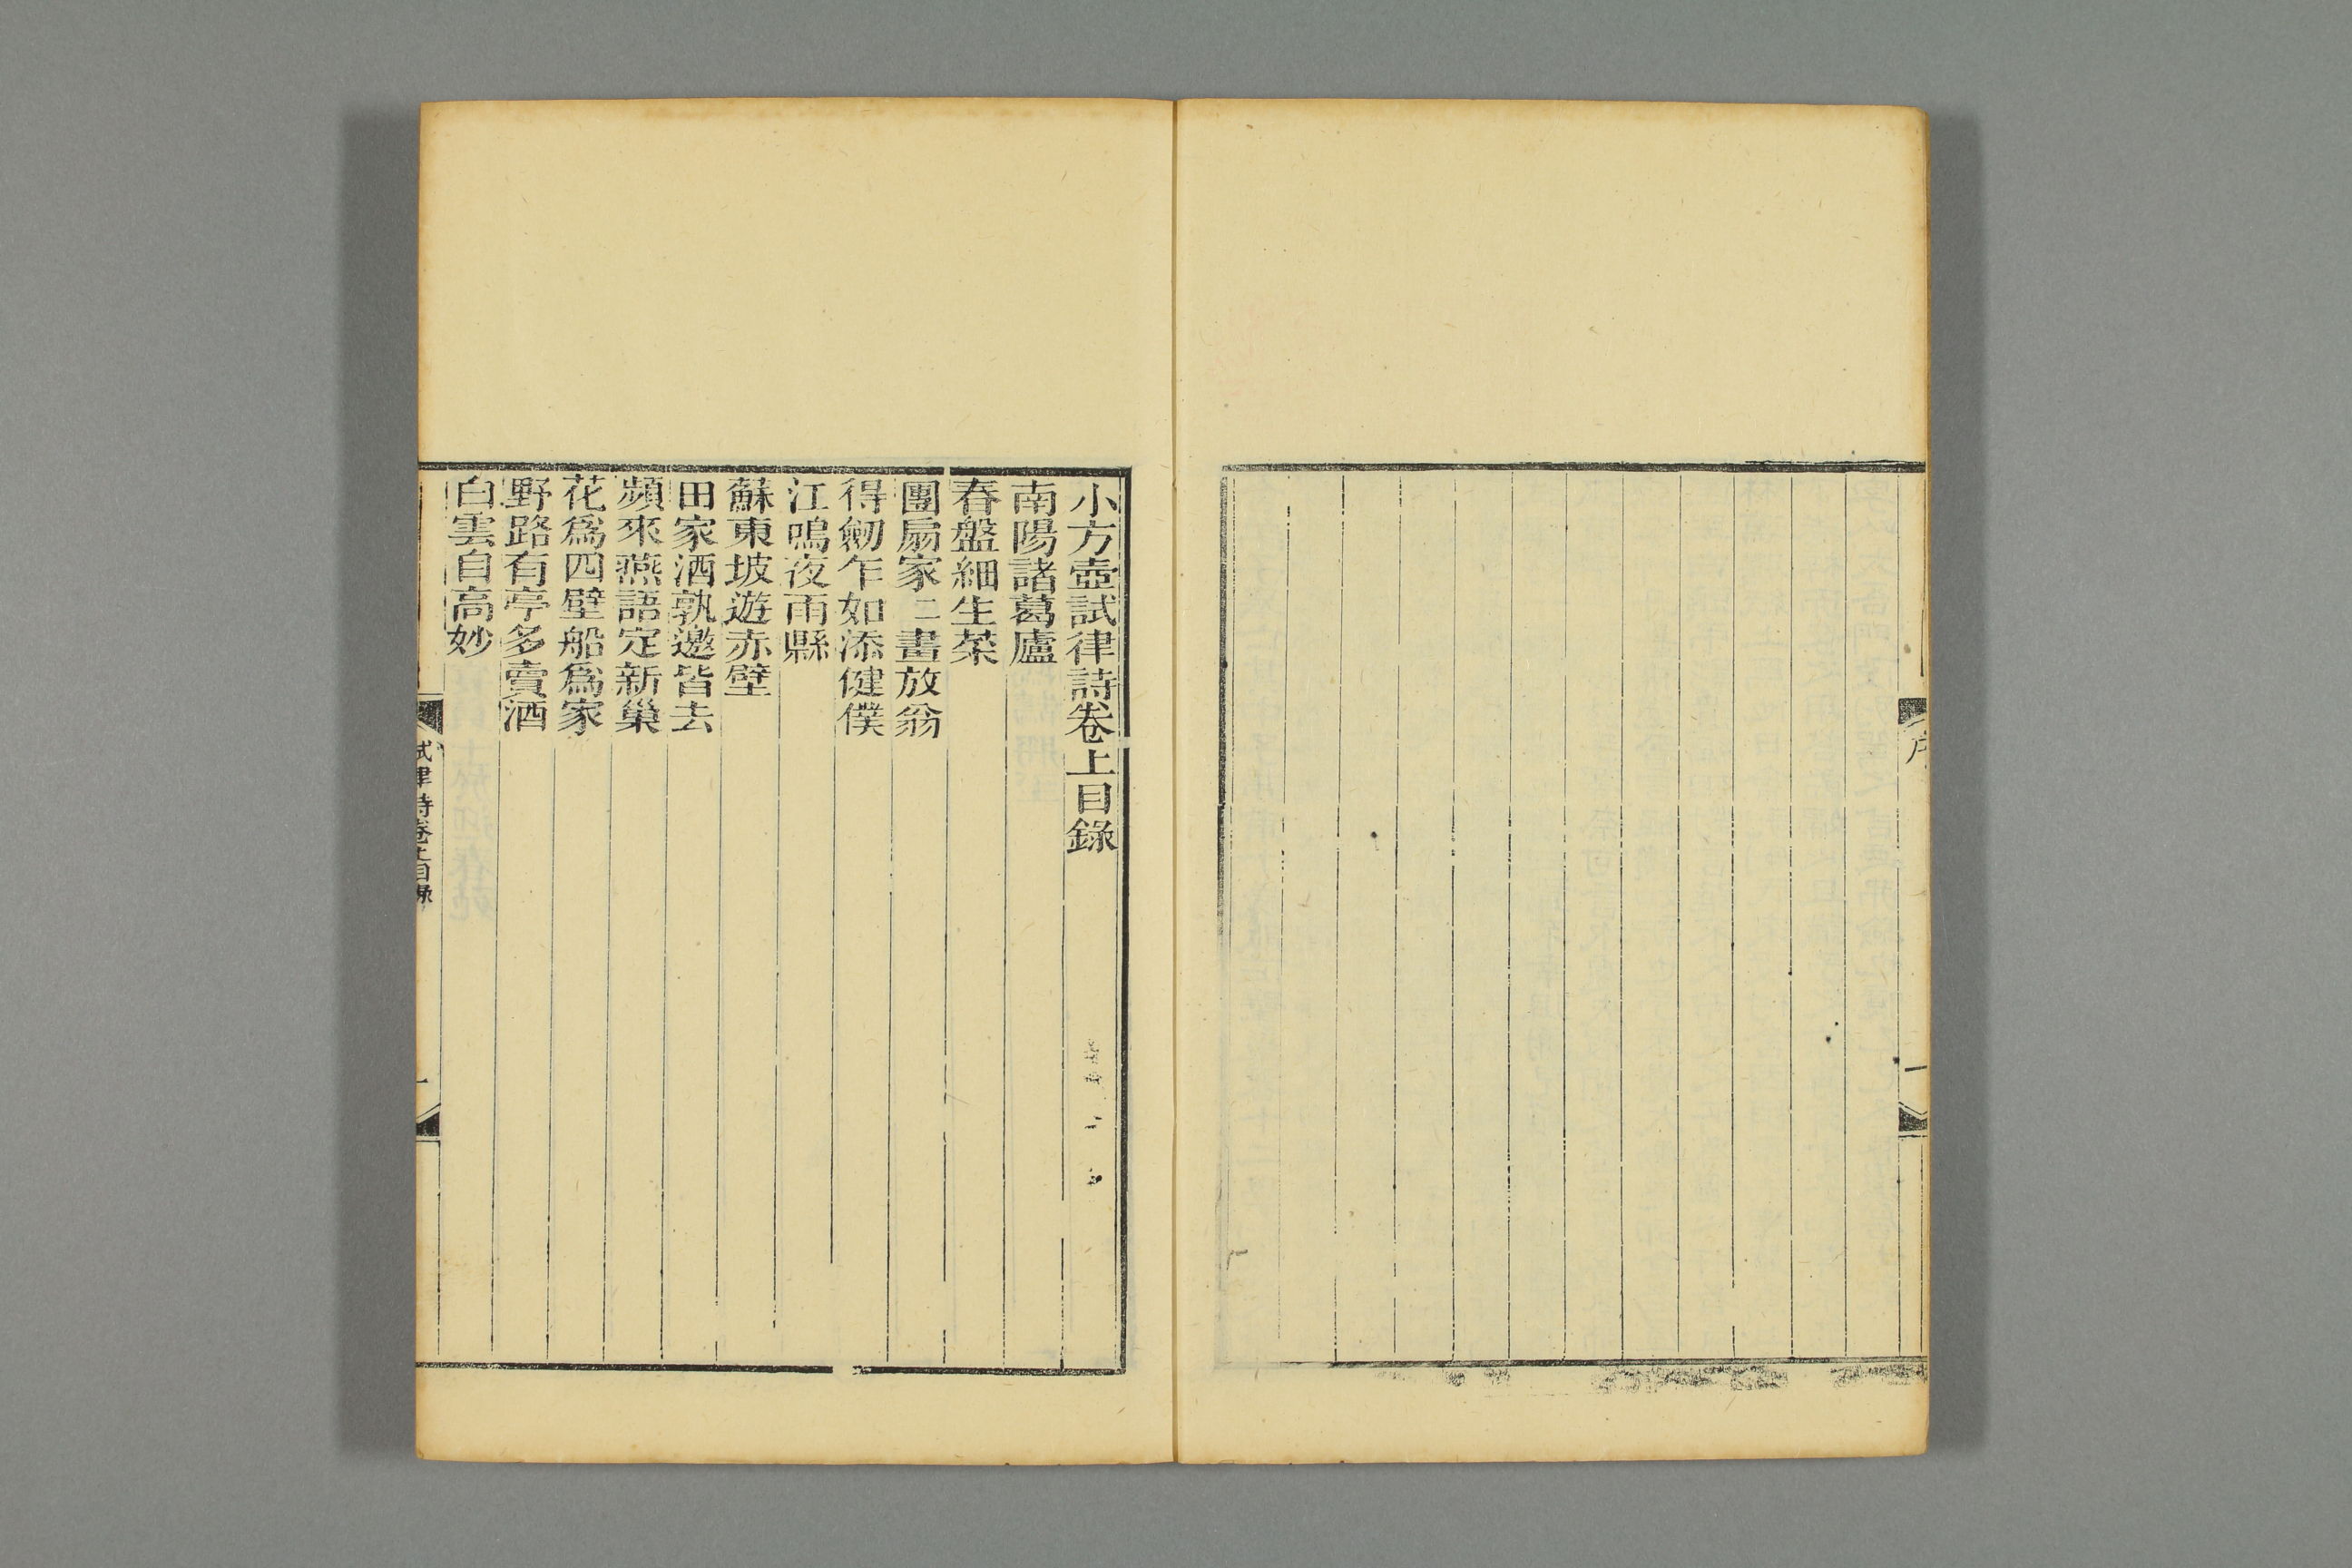 序
一
小方壺試律詩卷上目錄
南陽諸葛廬
春盤細生菜
團扇家二畫放翁
得劒乍如添健僕
江鳴夜雨縣
蘇東坡遊赤壁
田家酒孰邀皆去
頻來燕語定新巢
花爲四壁船爲家
野路有亭多賣酒
白雲自高妙
試律詩卷上目錄
一